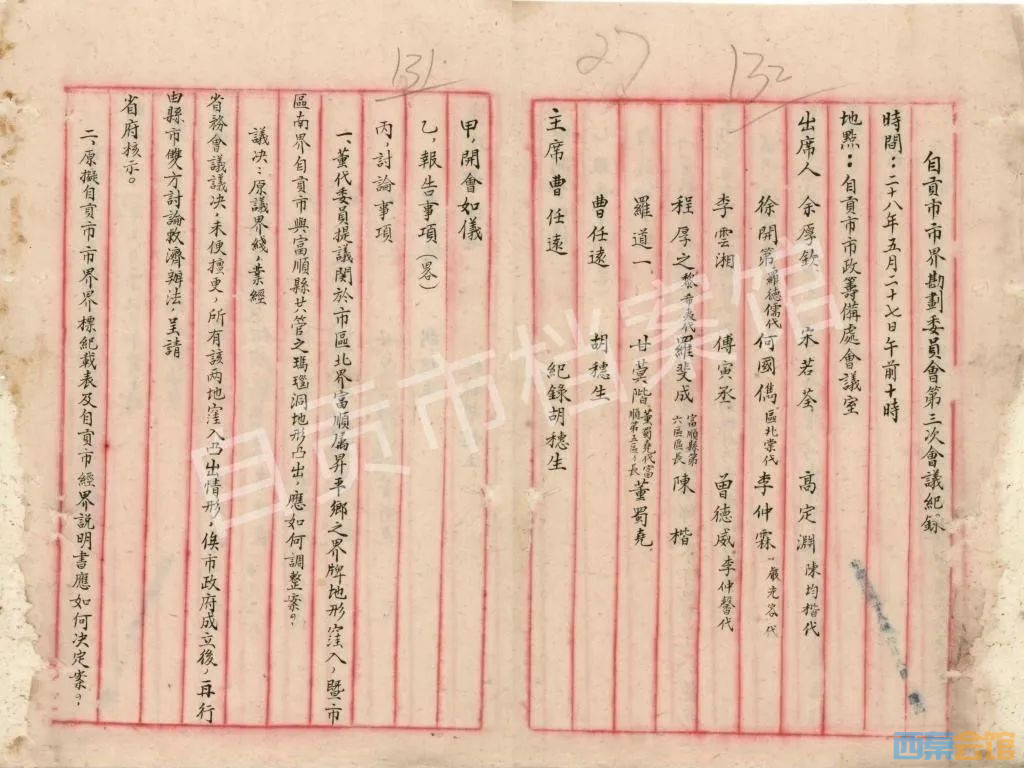 27
132
131
自貢市市界勘劃委員會第三次會議紀錄
時間：二十八年五月二十七日午前十時
地點：自貢市市政籌備處會議室
出席人 余厚欽 宋若荃 高定淵 陳均楷代
徐開第 羅德儒代 何國儁 區北棠代 李仲霖 嚴光容代
李雲湘 傅寅丞 曾德威 李仲馨代
程厚之 黎希夷代 羅斐成 富順縣第六區區長 陳楷
羅道一 甘蓂階 董蜀堯代富順第五區區長 董蜀堯
曹任遠 胡穗生
主席 曹任遠 紀錄 胡穗生
甲，開會如儀
乙，報告事項（畧）
丙，討論事項
一、董代委員提議関於市區北界富順屬昇平鄉之界牌地形窪入，暨市
區南界自貢市與富順縣共管之瑪瑙洞地形凸出，應如何調整案。
議决：原議界綫，業經
省務會議議决，未便擅更，所有該两地窪入凸出情形，俟市政府成立後，再行
由縣市雙方討論救濟辦法，呈請
省府核示。
二、原擬自貢市市界界標紀載表及自貢市經界説明書應如何决定案。
自贡市档案馆
西秦会馆